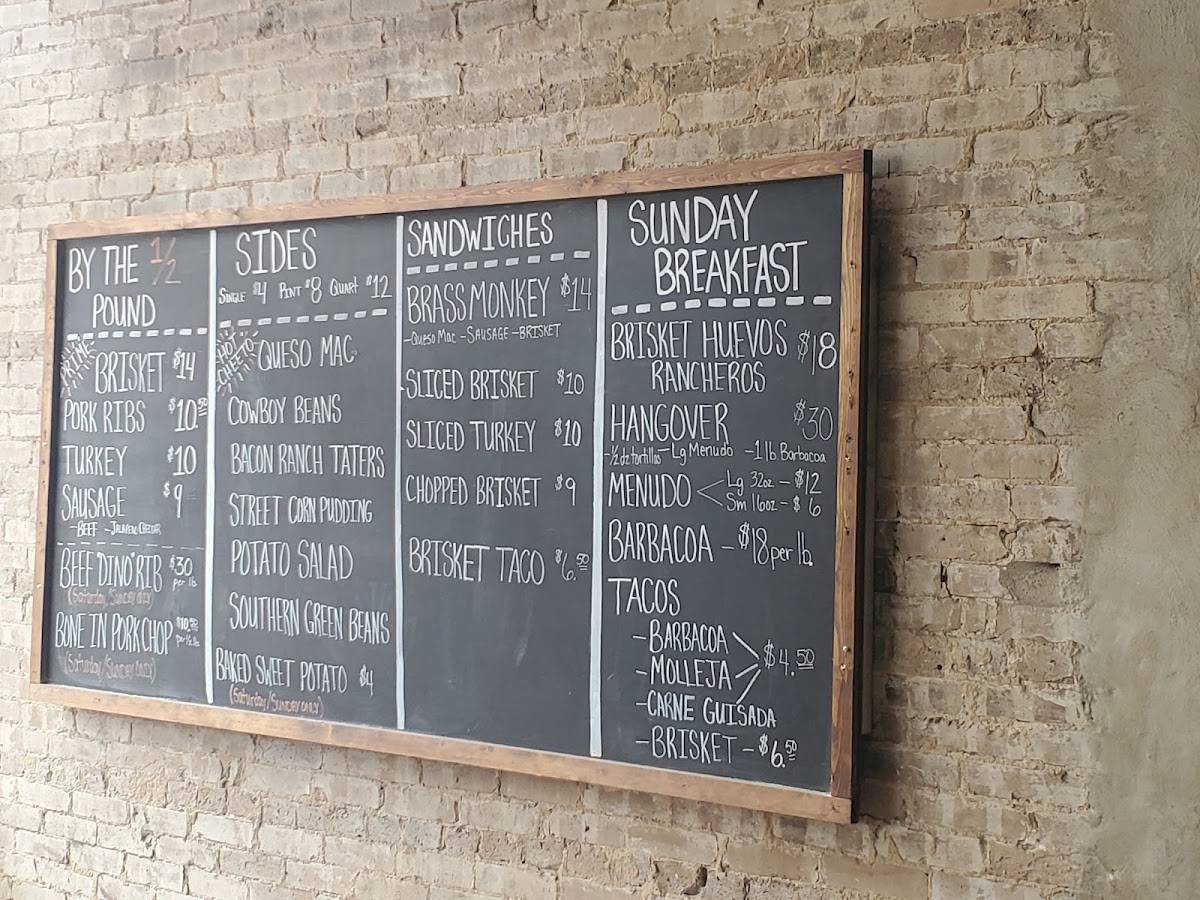 BY THE 1/2
POUND
PRIME
BRISKET $14
PORK RIBS $10.50
TURKEY $10
SAUSAGE $9
-BEEF -JALAPENO CHEDDAR
BEEF "DINO" RIB $30 per lb
(Saturday/Sunday only)
BONE IN PORKCHOP $10.50 per ½ lb
(Saturday/Sunday only)
SIDES
SINGLE $4 PINT $8 QUART $12
HOT CHEETO
QUESO MAC
COWBOY BEANS
BACON RANCH TATERS
STREET CORN PUDDING
POTATO SALAD
SOUTHERN GREEN BEANS
BAKED SWEET POTATO $4
(Saturday/Sunday only)
SANDWICHES
BRASS MONKEY $14
-QUESO MAC -SAUSAGE -BRISKET
SLICED BRISKET $10
SLICED TURKEY $10
CHOPPED BRISKET $9
BRISKET TACO $6.50
SUNDAY
BREAKFAST
BRISKET HUEVOS $18
RANCHEROS
HANGOVER $30
-½ dz tortillas -Lg Menudo -1 lb Barbacoa
MENUDO Lg 32oz - $12
Sm 16oz - $6
BARBACOA - $18 per lb
TACOS
-BARBACOA
-MOLLEJA $4.50
-CARNE GUISADA
-BRISKET - $6.50